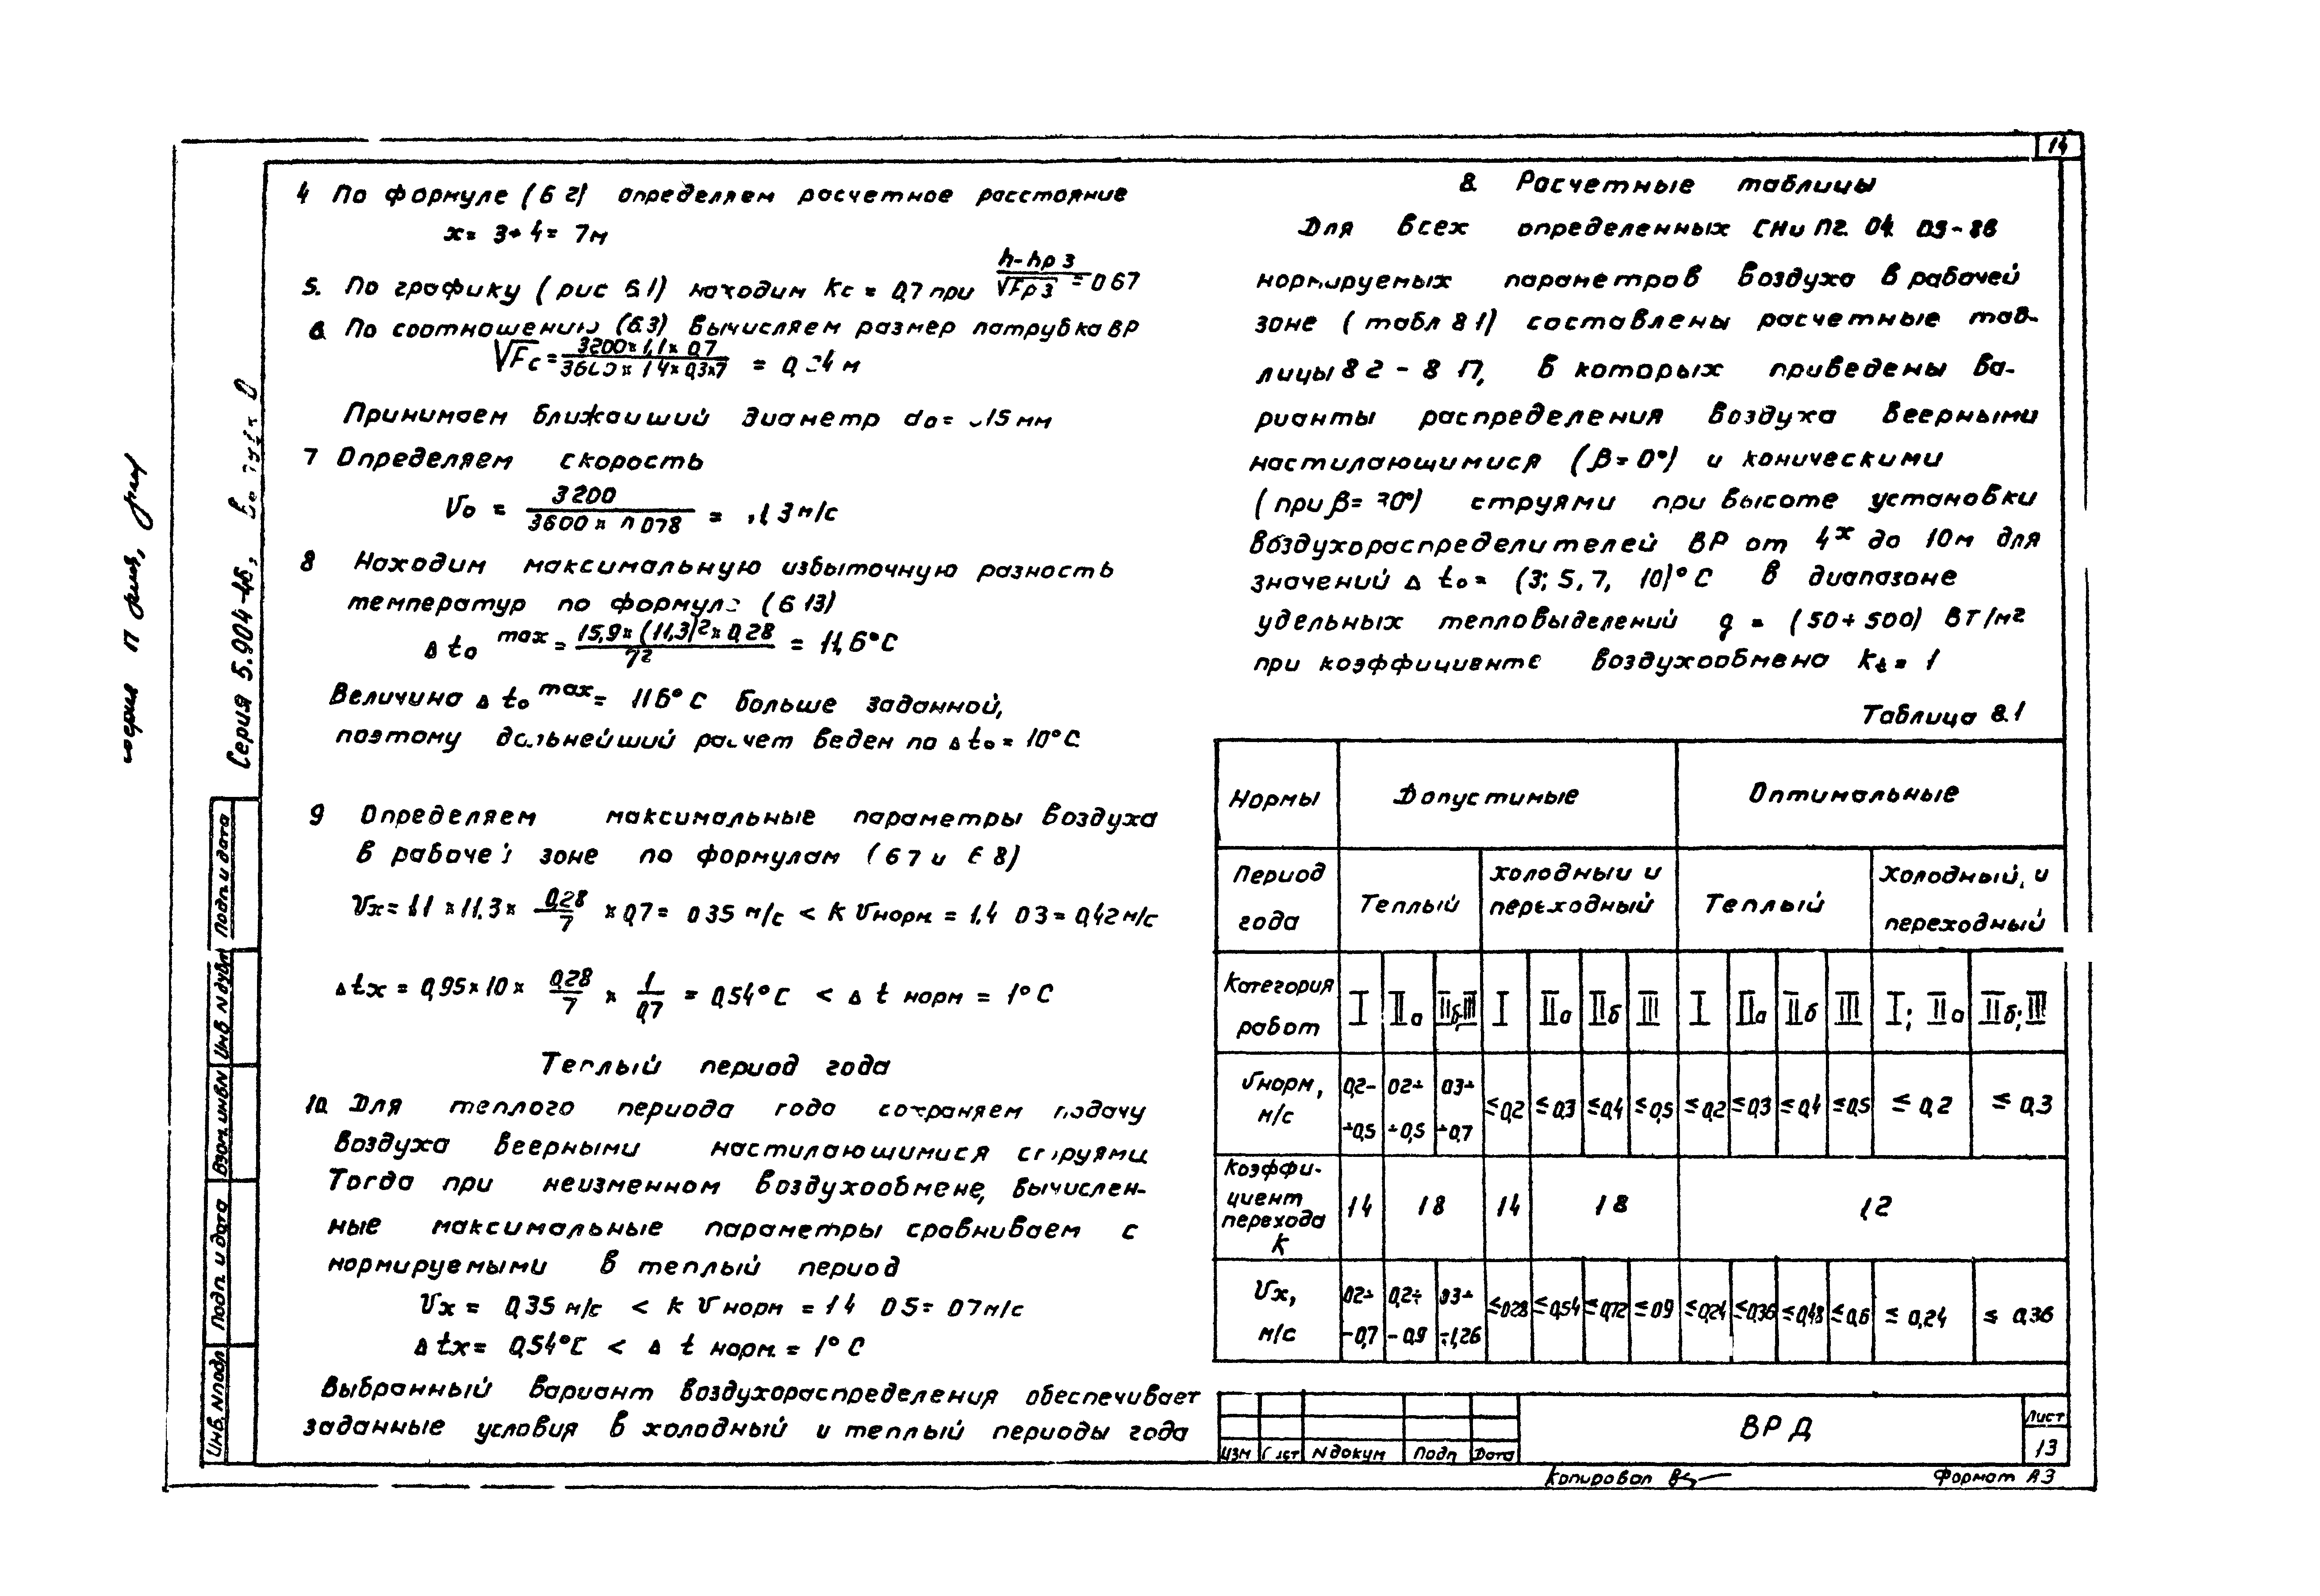 14
4 По формуле (6 2) определяем расчетное расстояние
x= 3+4= 7м
5. По графику (рис 6.1) находим Kc = 0,7 при h-hp з / √Fр з = 0 67
6 По соотношению (6.3) вычисляем размер патрубка ВР
√Fc = 3200×1,1×0,7 / 3600×1 4×0,3×7 = м
Принимаем ближайший диаметр do= 15 мм
7 Определяем скорость
Vo = 3200 / 3600 × 078 = 3 м/с
8 Находим максимальную избыточную разность
температур по формуле (6 13)
Δ to max = 15,9×(11,3)²×0,28 / 7² = 11,6°C
Величина Δ to max = 11 6°C больше заданной,
поэтому дальнейший расчет ведем по Δ to = 10°C
9 Определяем максимальные параметры воздуха
в рабочей зоне по формулам (6 7 и 6 8)
Vx= 1.1 × 11.3 × 0,28 / 7 × 0,7 = 0 35 м/с < K Vнорм. = 1.4 0 3 = 0,42 м/с
Δtx = 0,95×10× 0,28 / 7 × 1 / 0,7 = 0,54°C < Δ t норм = 1°C
Теплый период года
10. Для теплого периода года сохраняем подачу
воздуха веерными настилающимися струями.
Тогда при неизменном воздухообмене, вычислен-
ные максимальные параметры сравниваем с
нормируемыми в теплый период
Vx = 0,35 м/с < K V норм = 1 4 0 5 = 0 7 м/с
Δ tx = 0,54°C < Δ t норм. = 1°C
Выбранный вариант воздухораспределения обеспечивает
заданные условия в холодный и теплый периоды года
8. Расчетные таблицы
Для всех определенных СНиП2. 04. 05-86
нормируемых параметров воздуха в рабочей
зоне (табл 8 1) составлены расчетные таб-
лицы 8 2 - 8 17, в которых приведены ва-
рианты распределения воздуха веерными
настилающимися (β=0°) и коническими
(при β= 30°) струями при высоте установки
воздухораспределителей ВР от 4х до 10м для
значений Δ to = (3; 5, 7, 10)°C в диапазоне
удельных тепловыделений q = (50÷500) Вт/м2
при коэффициенте воздухообмена Kt = 1
Таблица 8.1
Нормы Допустимые Оптимальные
Период года Теплый холодный и переходный Теплый Холодный, и переходный
Категория работ I IIа IIб,III I IIа IIб III I IIа IIб III I; IIа IIб; III
Vнорм, м/с 0,2÷ ÷0,5 0 2÷ ÷0,5 0,3÷ ÷0,7 ≤0,2 ≤0,3 ≤0,4 ≤0,5 ≤0,2 ≤0,3 ≤0,4 ≤0,5 ≤ 0,2 ≤ 0,3
Коэффи-
циент
перехода
K 1 4 1 8 1 4 1 8 1,2
Vx, м/с 0 2÷ ÷0,7 0,2÷ ÷0,9 0 3÷ ÷1,26 ≤0 28 ≤0,54 ≤0,72 ≤0 9 ≤0,24 ≤0,36 ≤0,48 ≤0,6 ≤ 0,24 ≤ 0,36
Изм Лист N докум Подп Дата
ВР Д
Лист
13
Копировал
Формат А3
Серия 5.904-46,
Подп. и дата
Инв N дубл
Взам. инв N
Подп. и дата
Инв. N подл